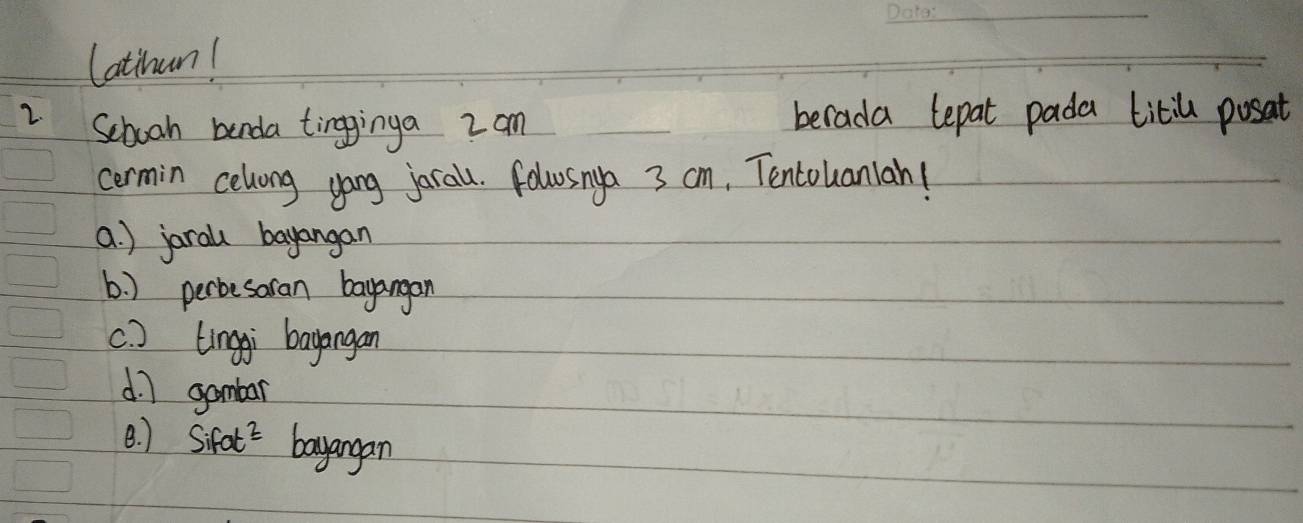 Date:
Latihan!
2. Sebuah benda tingginya 2 cm berada tepat pada titik pusat
cermin cekung yang jarak. fokusnya 3 cm. Tentukanlah!
a.) jarak bayangan
b.) perbesaran bayangan
c.) tinggi bayangan
d.) gambar
e.) Sifat² bayangan